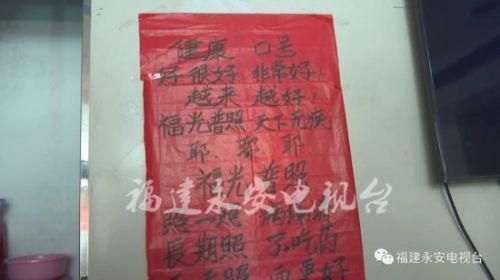 健康 口号
好 很好 非常好,
越来 越好,
福光普照 天下无疾
耶、耶、耶
福光 普照
福建永安电视台
照一照 病
長期照 不吃药
照 要好
福建永安电视台